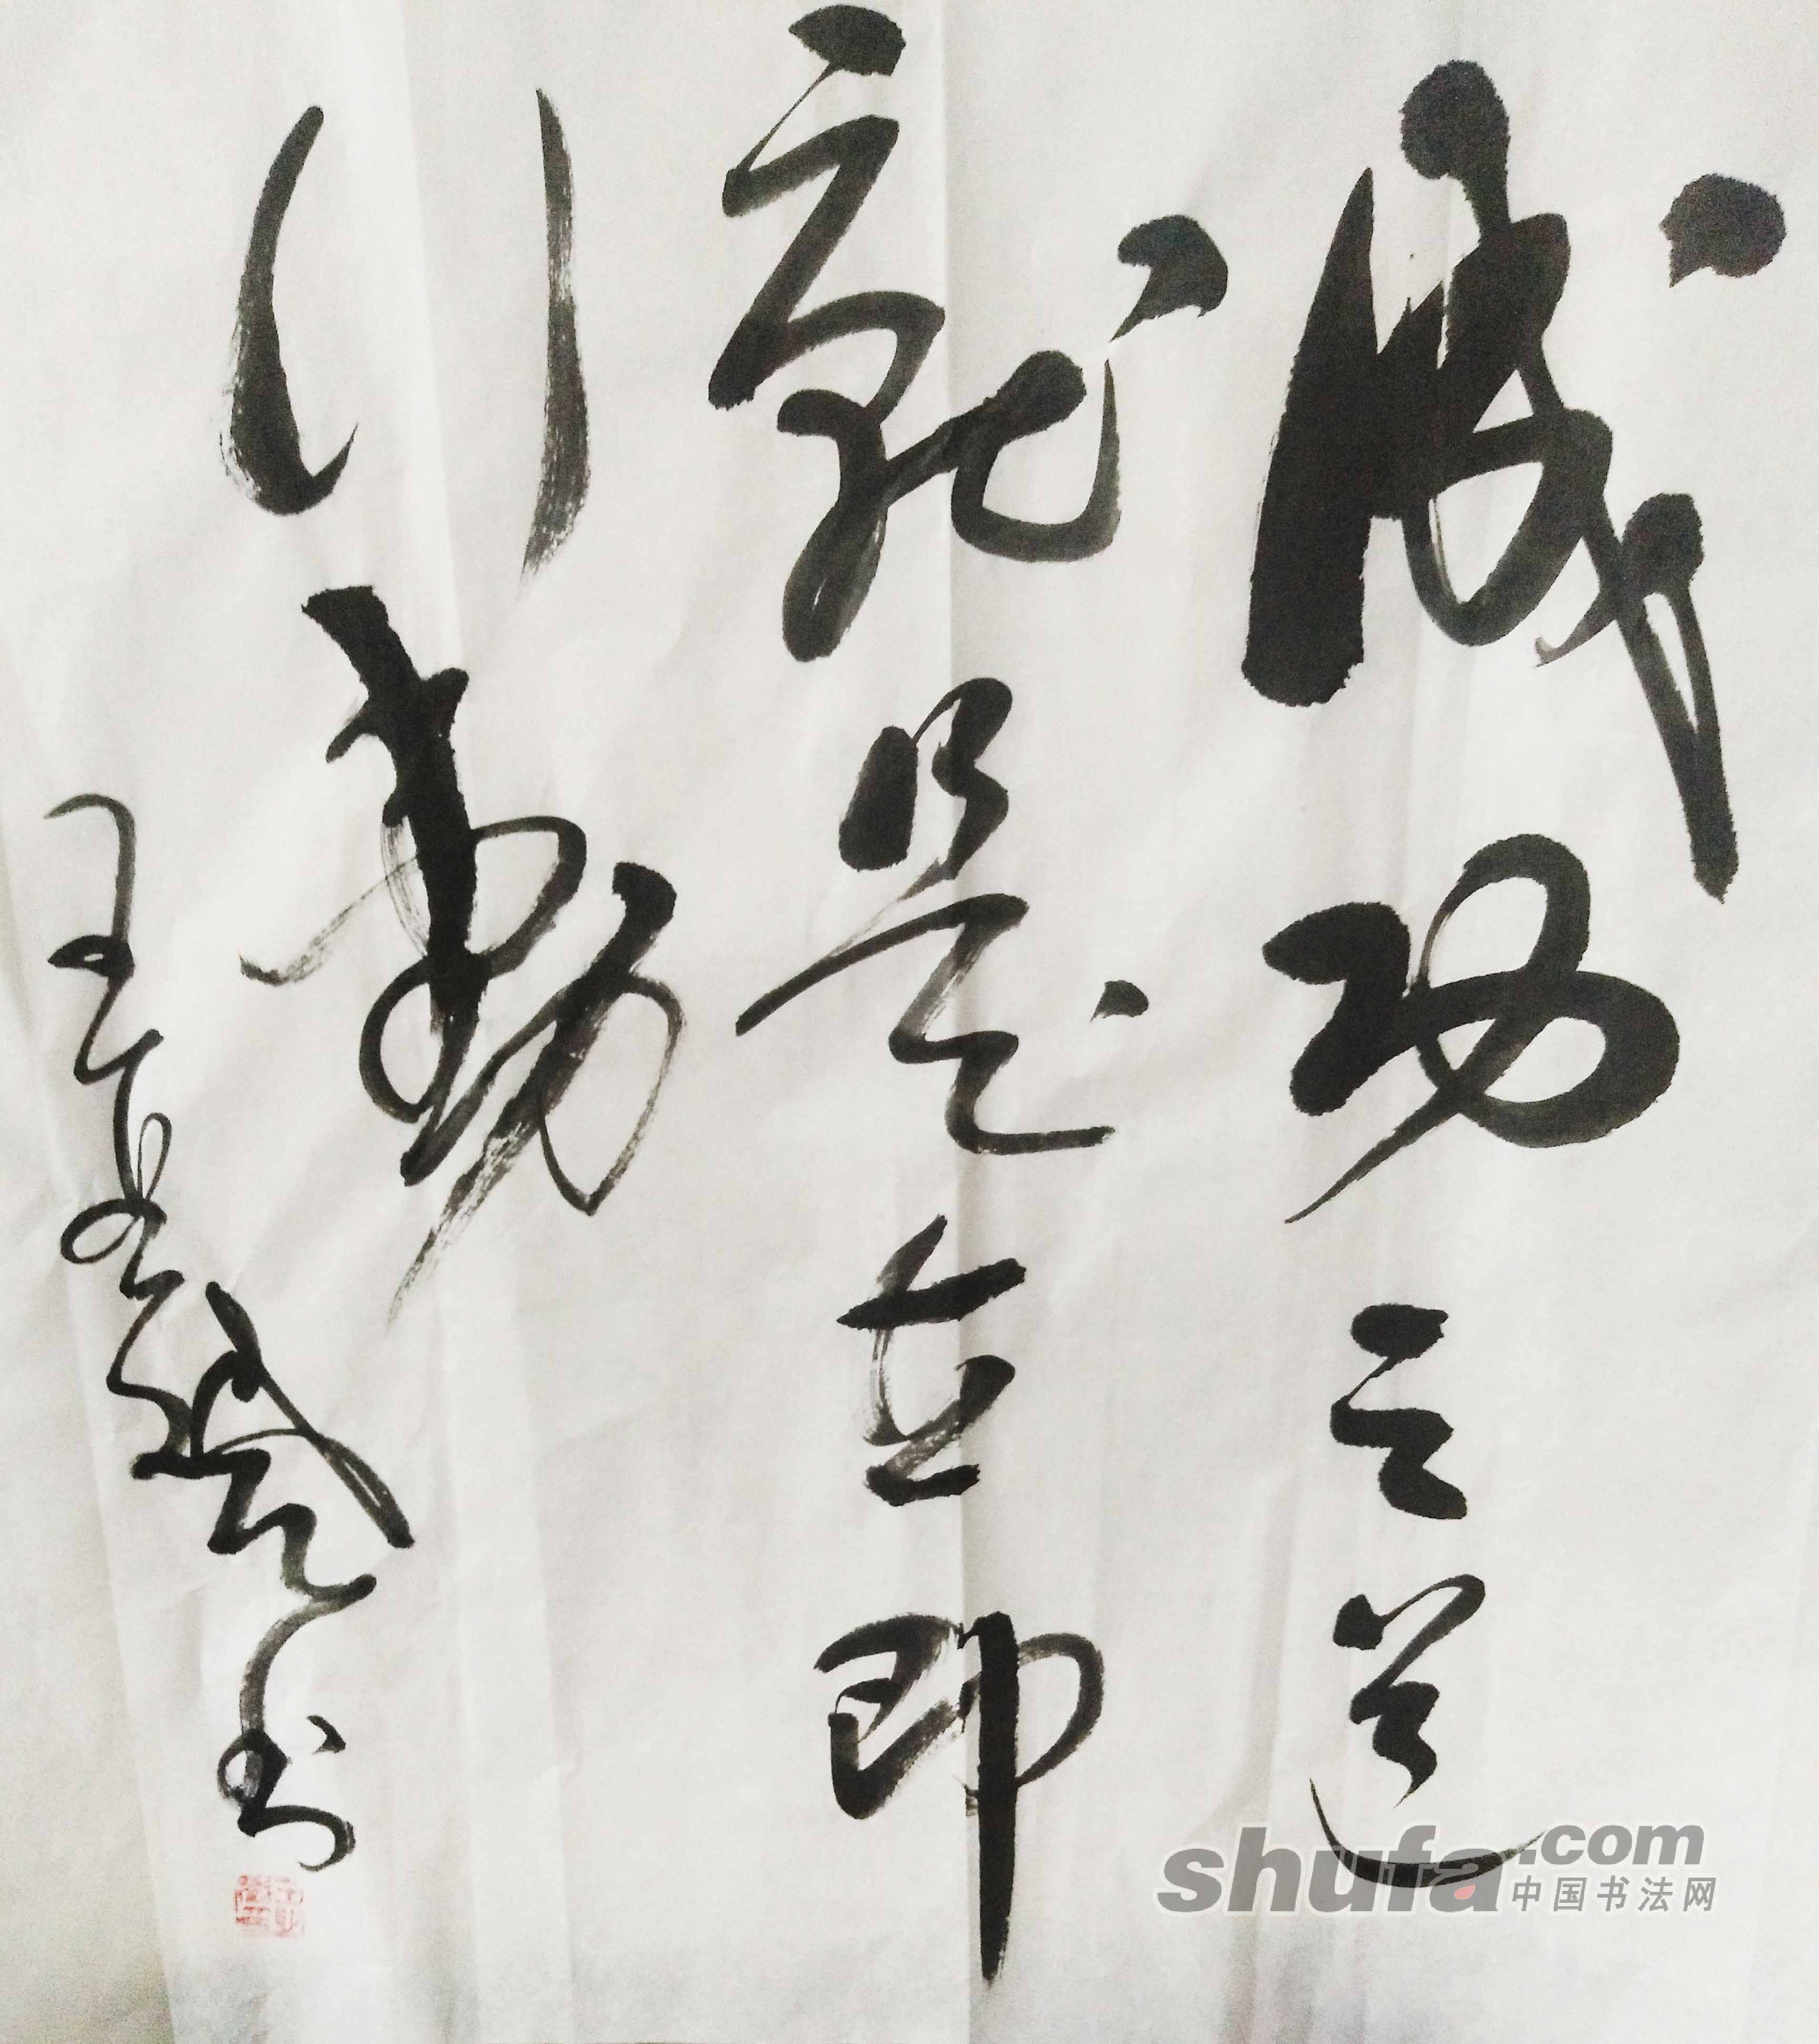 成功之道
就是立即
行動
王
书
shufa.com
中国书法网